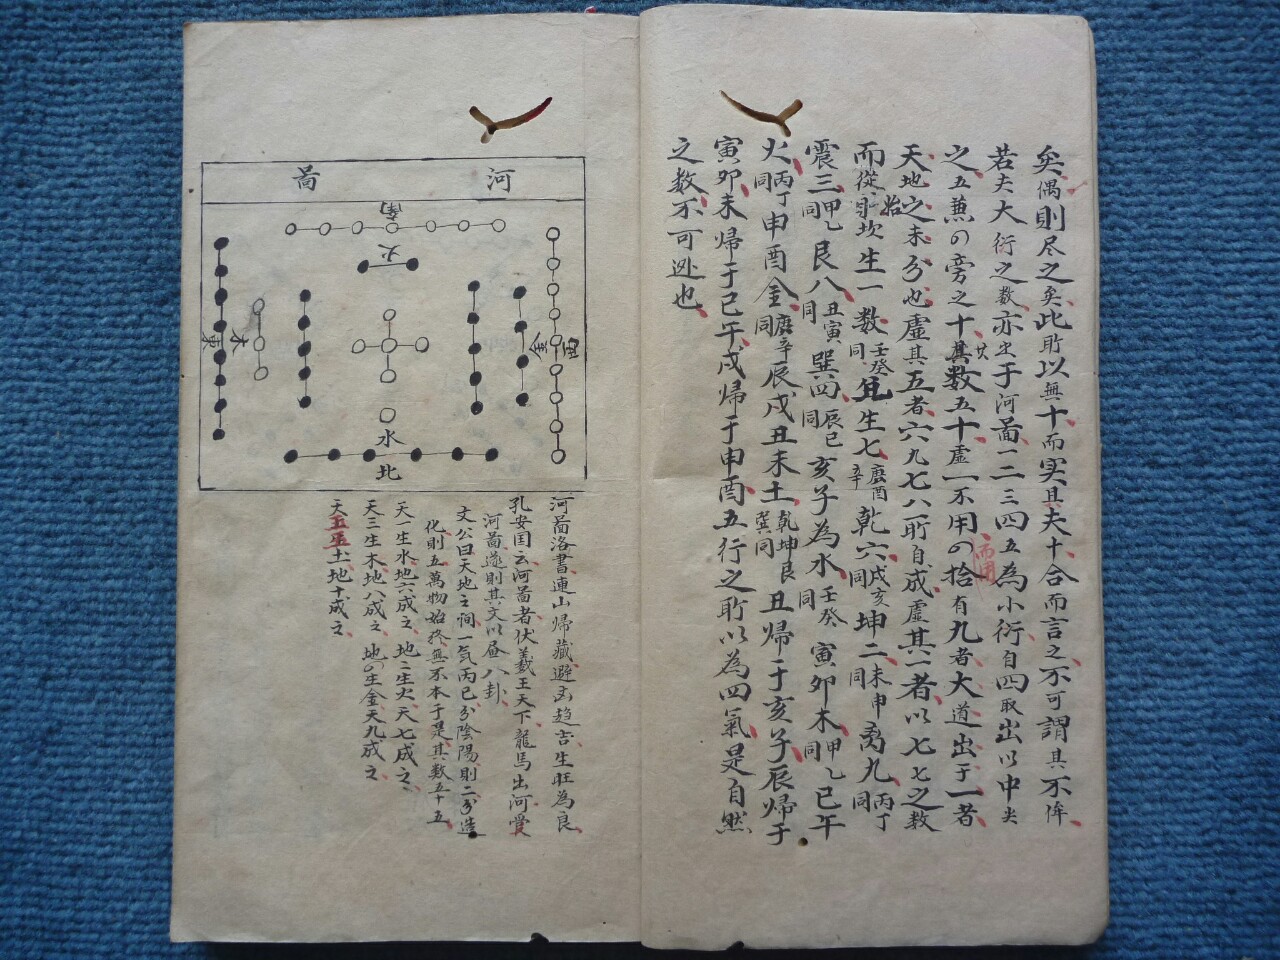 矣偶則尽之矣此所以無十而实其夫十合而言之不可謂其不侔
若夫大衍之数亦出于河啚一二三四五為小衍自四取出以中央
之五兼の旁之十其数五十虚一不用の拾有九者大道出于一者
共
而用
天地之未分也虚其五者六九七八所自成虚其一者以七七之数
而從坎生一数壬癸同兑生七庚酉辛乾六戌亥同坤二未申同离九丙丁同
始
震三甲乙同艮八丑寅同巽四辰巳同亥子為水壬癸同寅卯木甲乙同巳午
火丙丁同申酉金庚辛同辰戌丑未土乾坤艮巽同丑帰于亥子辰帰于
寅卯未帰于巳午戌帰于申酉五行之所以為四氣是自然
之数不可逃也
河啚
南
火
西
金
木
東
水
北
河啚洛書連山帰藏避凶趋吉生旺為良
孔安国云河啚者伏羲王天下龍馬出河
河啚遂則其文以昼八卦
文公曰天地之间一気而已分陰陽則二分造
化則五萬物始終無不本于是其数五十五
天一生水地六成之地二生火天七成之
天三生木地八成之地の生金天九成之
天五生土地十成之